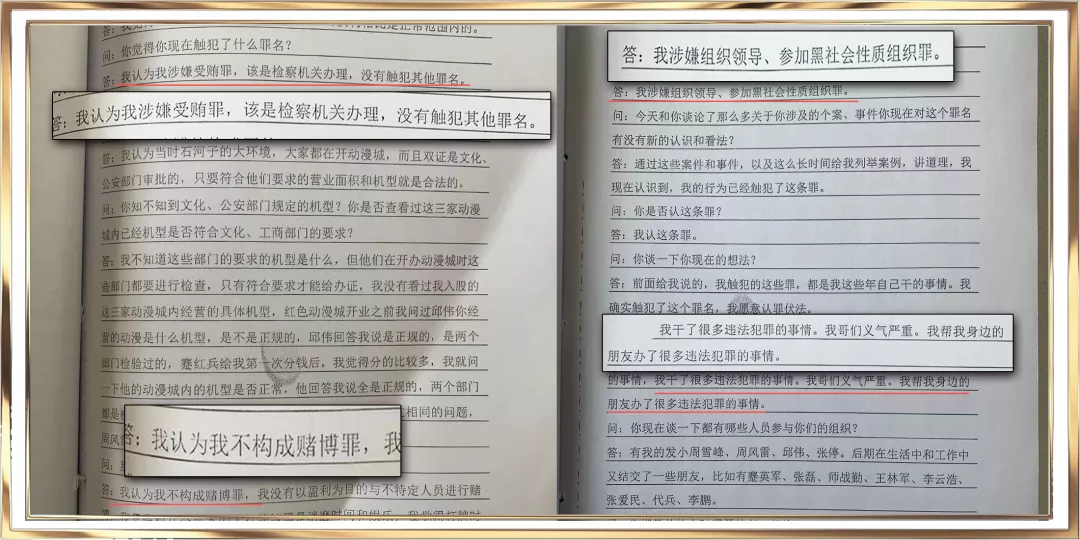 问：你觉得你现在触犯了什么罪名？
答：我认为我涉嫌受贿罪，该是检察机关办理，没有触犯其他罪名。
答：我认为我涉嫌受贿罪，该是检察机关办理，没有触犯其他罪名。
答：我认为当时石河子的大环境，大家都在开动漫城，而且双证是文化、
公安部门审批的，只要符合他们要求的营业面积和机型就是合法的。
问：你知不知到文化、公安部门规定的机型？你是否查看过这三家动漫
城内已经机型是否符合文化、工商部门的要求？
答：我不知道这些部门的要求的机型是什么，但他们在开办动漫城时这
些部门都要进行检查，只有符合要求才能给办证，我没有看过我入股的
这三家动漫城内经营的具体机型，红色动漫城开业之前我问过邱伟你经
营的动漫是什么机型，是不是正规的，邱伟回答我说是正规的，是两个
部门检验过的，蹇红兵给我第一次分钱后，我觉得分的比较多，我就问
一下他的动漫城内的机型是否正常，他回答我说全是正规的，两个部门
都是
相同的问题，
周风雷
问：
答：我认为我不构成赌博罪，我
答：我认为我不构成赌博罪，我没有以盈利为目的与不特定人员进行赌
答：我涉嫌组织领导、参加黑社会性质组织罪。
答：我涉嫌组织领导、参加黑社会性质组织罪。
问：今天和你谈论了那么多关于你涉及的个案、事件你现在对这个罪名
有没有新的认识和看法？
答：通过这些案件和事件，以及这么长时间给我列举案例，讲道理，我
现在认识到，我的行为已经触犯了这条罪。
问：你是否认这条罪？
答：我认这条罪。
问：你谈一下你现在的想法？
答：前面给我说的，我触犯的这些罪，都是我这些年自己干的事情。我
确实触犯了这个罪名，我愿意认罪伏法。
我干了很多违法犯罪的事情。我哥们义气严重。我帮我身边的
朋友办了很多违法犯罪的事情。
的事情，我干了很多违法犯罪的事情。我哥们义气严重。我帮我身边的
朋友办了很多违法犯罪的事情。
问：你现在谈一下都有哪些人员参与你们的组织？
答：有我的发小周雪峰、周风雷、邱伟、张停。后期在生活中和工作中
又结交了一些朋友，比如有蹇英军、张磊、师战勤、王林军、李云浩、
张爱民、代兵、李鹏。